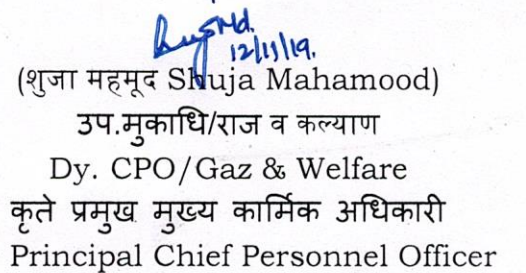 12/11/19.
(शुजा महमूद Shuja Mahamood)
उप.मुकाधि/राज व कल्याण
Dy. CPO/Gaz & Welfare
कृते प्रमुख मुख्य कार्मिक अधिकारी
Principal Chief Personnel Officer